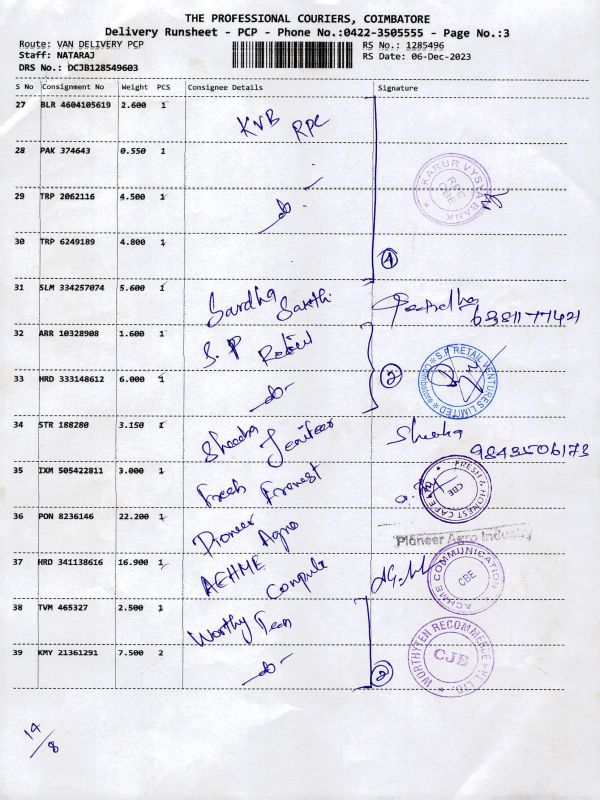 THE PROFESSIONAL COURIERS, COIMBATORE
Delivery Runsheet - PCP - Phone No.:0422-3505555 - Page No.:3
Route: VAN DELIVERY PCP
RS No.: 1285496
Staff: NATARAJ
RS Date: 06-Dec-2023
DRS No.: DCJB128549603
S No Consignment No Weight PCS Consignee Details Signature
27 BLR 4604105619 2.600 1 KVB RPC
28 PAK 374643 0.550 1
KARUR VYSYA BANK
RPC CBE
29 TRP 2062116 4.500 1 -do-
30 TRP 6249189 4.800 1
4
31 SLM 334257074 5.600 1 Sardha Sarathi
6381177421
32 ARR 10328908 1.600 1 S.P Retail
S.P RETAIL VENTURES LIMITED
33 HRD 333148612 6.000 1 -do- 2
34 STR 188280 3.150 1 Sheeba Jenifeer Sheeba
9843506173
35 IXM 505422811 3.000 1 Fresh Fronest
FRESH & HONEST CAFE
CBE
36 PON 8236146 22.200 1 Pioneer Agro
Pioneer Agro Industry
37 HRD 341138616 16.900 1 AEHME Compute
ACHME COMMUNICATION
CBE
38 TVM 465327 2.500 1 Worthy Teen
WORTHYTEN RECOMMERCE PVT LTD.
CJB
39 KMY 21361291 7.500 2 -do- 2
14/8